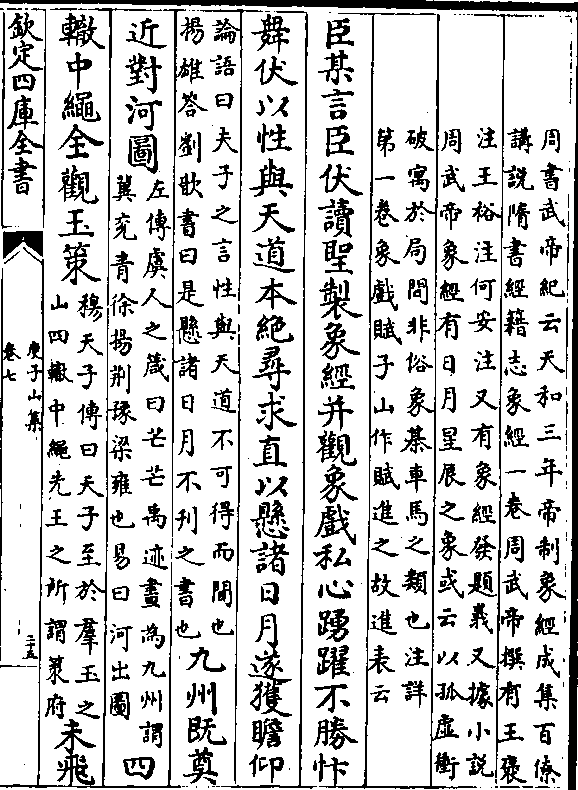 周書武帝紀云天和三年帝制象經成集百僚
講説隋書經籍志象經一卷周武帝撰有王褒
注王裕注何妥注又有象經發題義又據小説
周武帝象經有日月星辰之象或云以孤虚衝
破寓於局間非俗象棊車馬之類也注詳
第一卷象戲賦子山作賦進之故進表云
臣某言臣伏讀聖製象經并觀象戲私心踴躍不勝忭
舞伏以性與天道本絶尋求直以懸諸日月遂獲瞻仰
論語曰夫子之言性與天道不可得而聞也
揚雄答劉歆書曰是懸諸日月不刊之書也
九州既奠
近對河圖
左傳虞人之箴曰芒芒禹迹畫為九州謂
冀兖青徐揚荆豫梁雍也易曰河出圖
四
轍中繩全觀玉策
穆天子傳曰天子至於羣玉之
山四轍中繩先王之所謂策府
未飛
欽定四庫全書
庾子山集
卷七
二十五